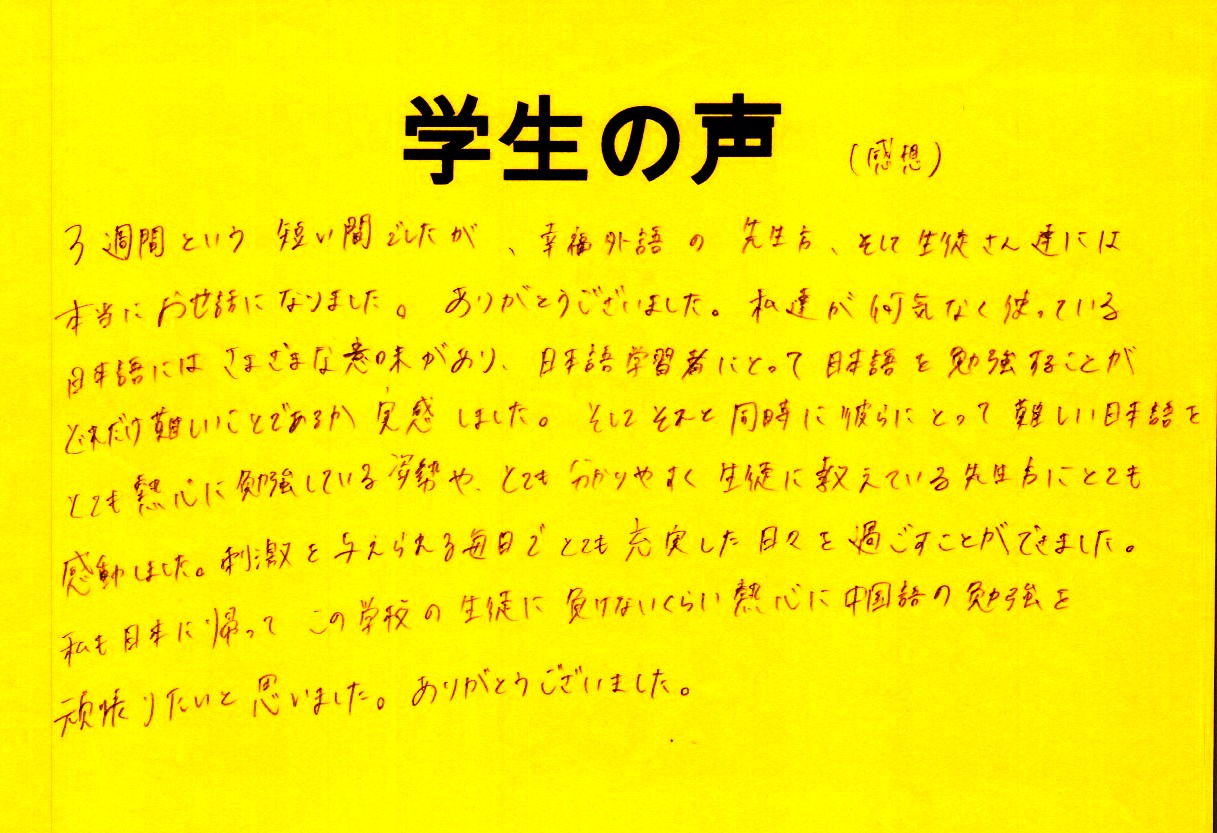 学生の声 (感想)
3週間という短い間でしたが、幸福外語の先生方、そして生徒さん達には
本当にお世話になりました。ありがとうございました。私達が何気なく使っている
日本語にはさまざまな意味があり、日本語学習者にとって日本語を勉強することが
どれだけ難しいことであるか実感しました。そしてそれと同時に彼らにとって難しい日本語を
とても熱心に勉強している姿勢や、とても分かりやすく生徒に教えている先生方にとても
感動しました。刺激を与えられる毎日でとても充実した日々を過ごすことができました。
私も日本に帰ってこの学校の生徒に負けないくらい熱心に中国語の勉強を
頑張りたいと思いました。ありがとうございました。